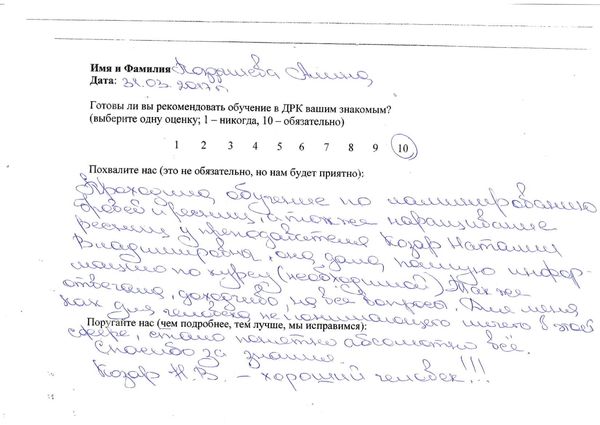 Имя и Фамилия Кардашева Алина
Дата: 31.03.2017 г.
Готовы ли вы рекомендовать обучение в ДРК вашим знакомым?
(выберите одну оценку; 1 – никогда, 10 – обязательно)
1 2 3 4 5 6 7 8 9 10
Похвалите нас (это не обязательно, но нам будет приятно):
Проходила обучение по ламинированию
бровей и ресниц, а также наращивание
ресниц у преподавателя Козар Наталии
Владимировны, она дала полную инфор-
мацию по курсу (необходимой). Также
отвечала, доходчиво, на все вопросы. Для меня
как для человека не понимающего ничего в этой
Поругайте нас (чем подробнее, тем лучше, мы исправимся):
сфере, стало понятно абсолютно всё.
Спасибо за знания.
Козар Н.В. – хороший человек!!!